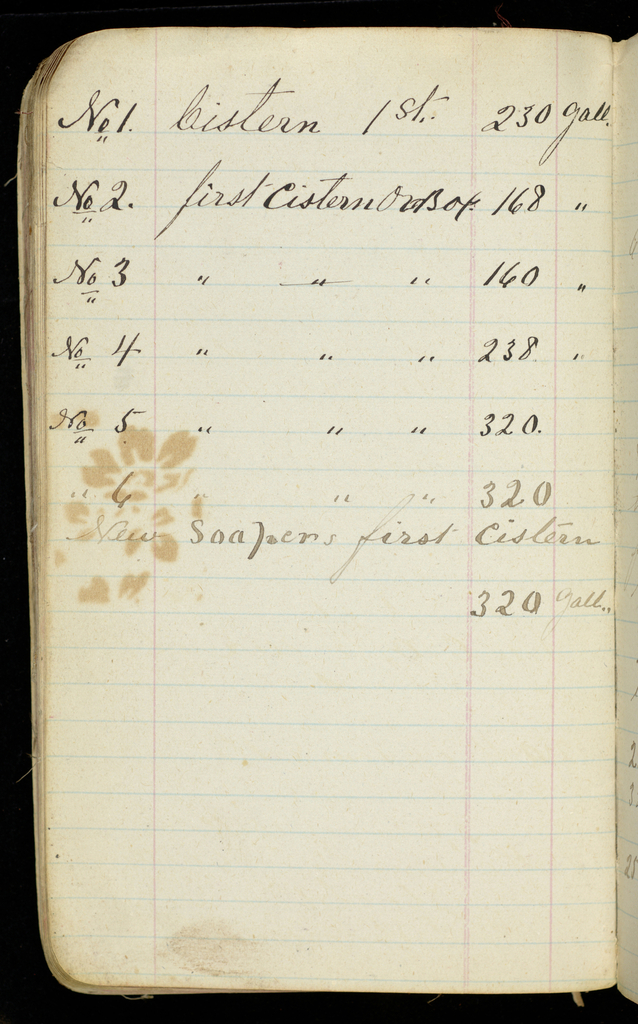 No 1. Cistern 1st. 230 gall.
No 2. first Cistern Or Box 168 "
No 3 " " " 160 "
No 4 " " " 238 "
No 5 " " " 320.
" 6 " " " 320
New Soapers first Cistern
320 gall.